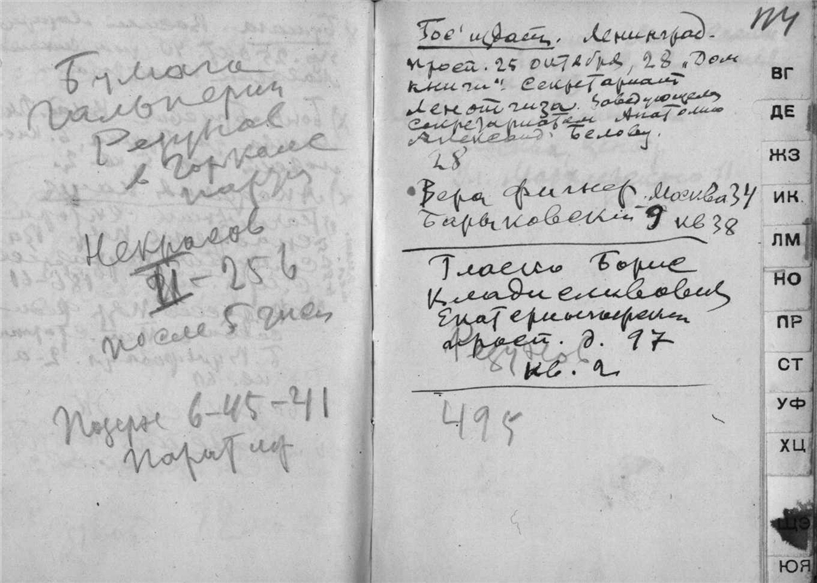 Бумага
Гальперин
Редунов
в Горкоме
Некрасов
II-256
после 5 дней
6-45-41
174
Госиздат. Ленинград.
просп. 25 октября, 28 "Дом
книги". Секретариат
Ленотгиза. Заведующему
секретариатом Анатолию
Александ. Белову.
28
Вера Фигнер. Москва 34
Барыковский 9 кв 38
Гласко Борис
Владиславович
Екатерингофский
просп. д. 97
кв. 2
495
ВГ
ДЕ
ЖЗ
ИК
ЛМ
НО
ПР
СТ
УФ
ХЦ
ЩЭ
ЮЯ